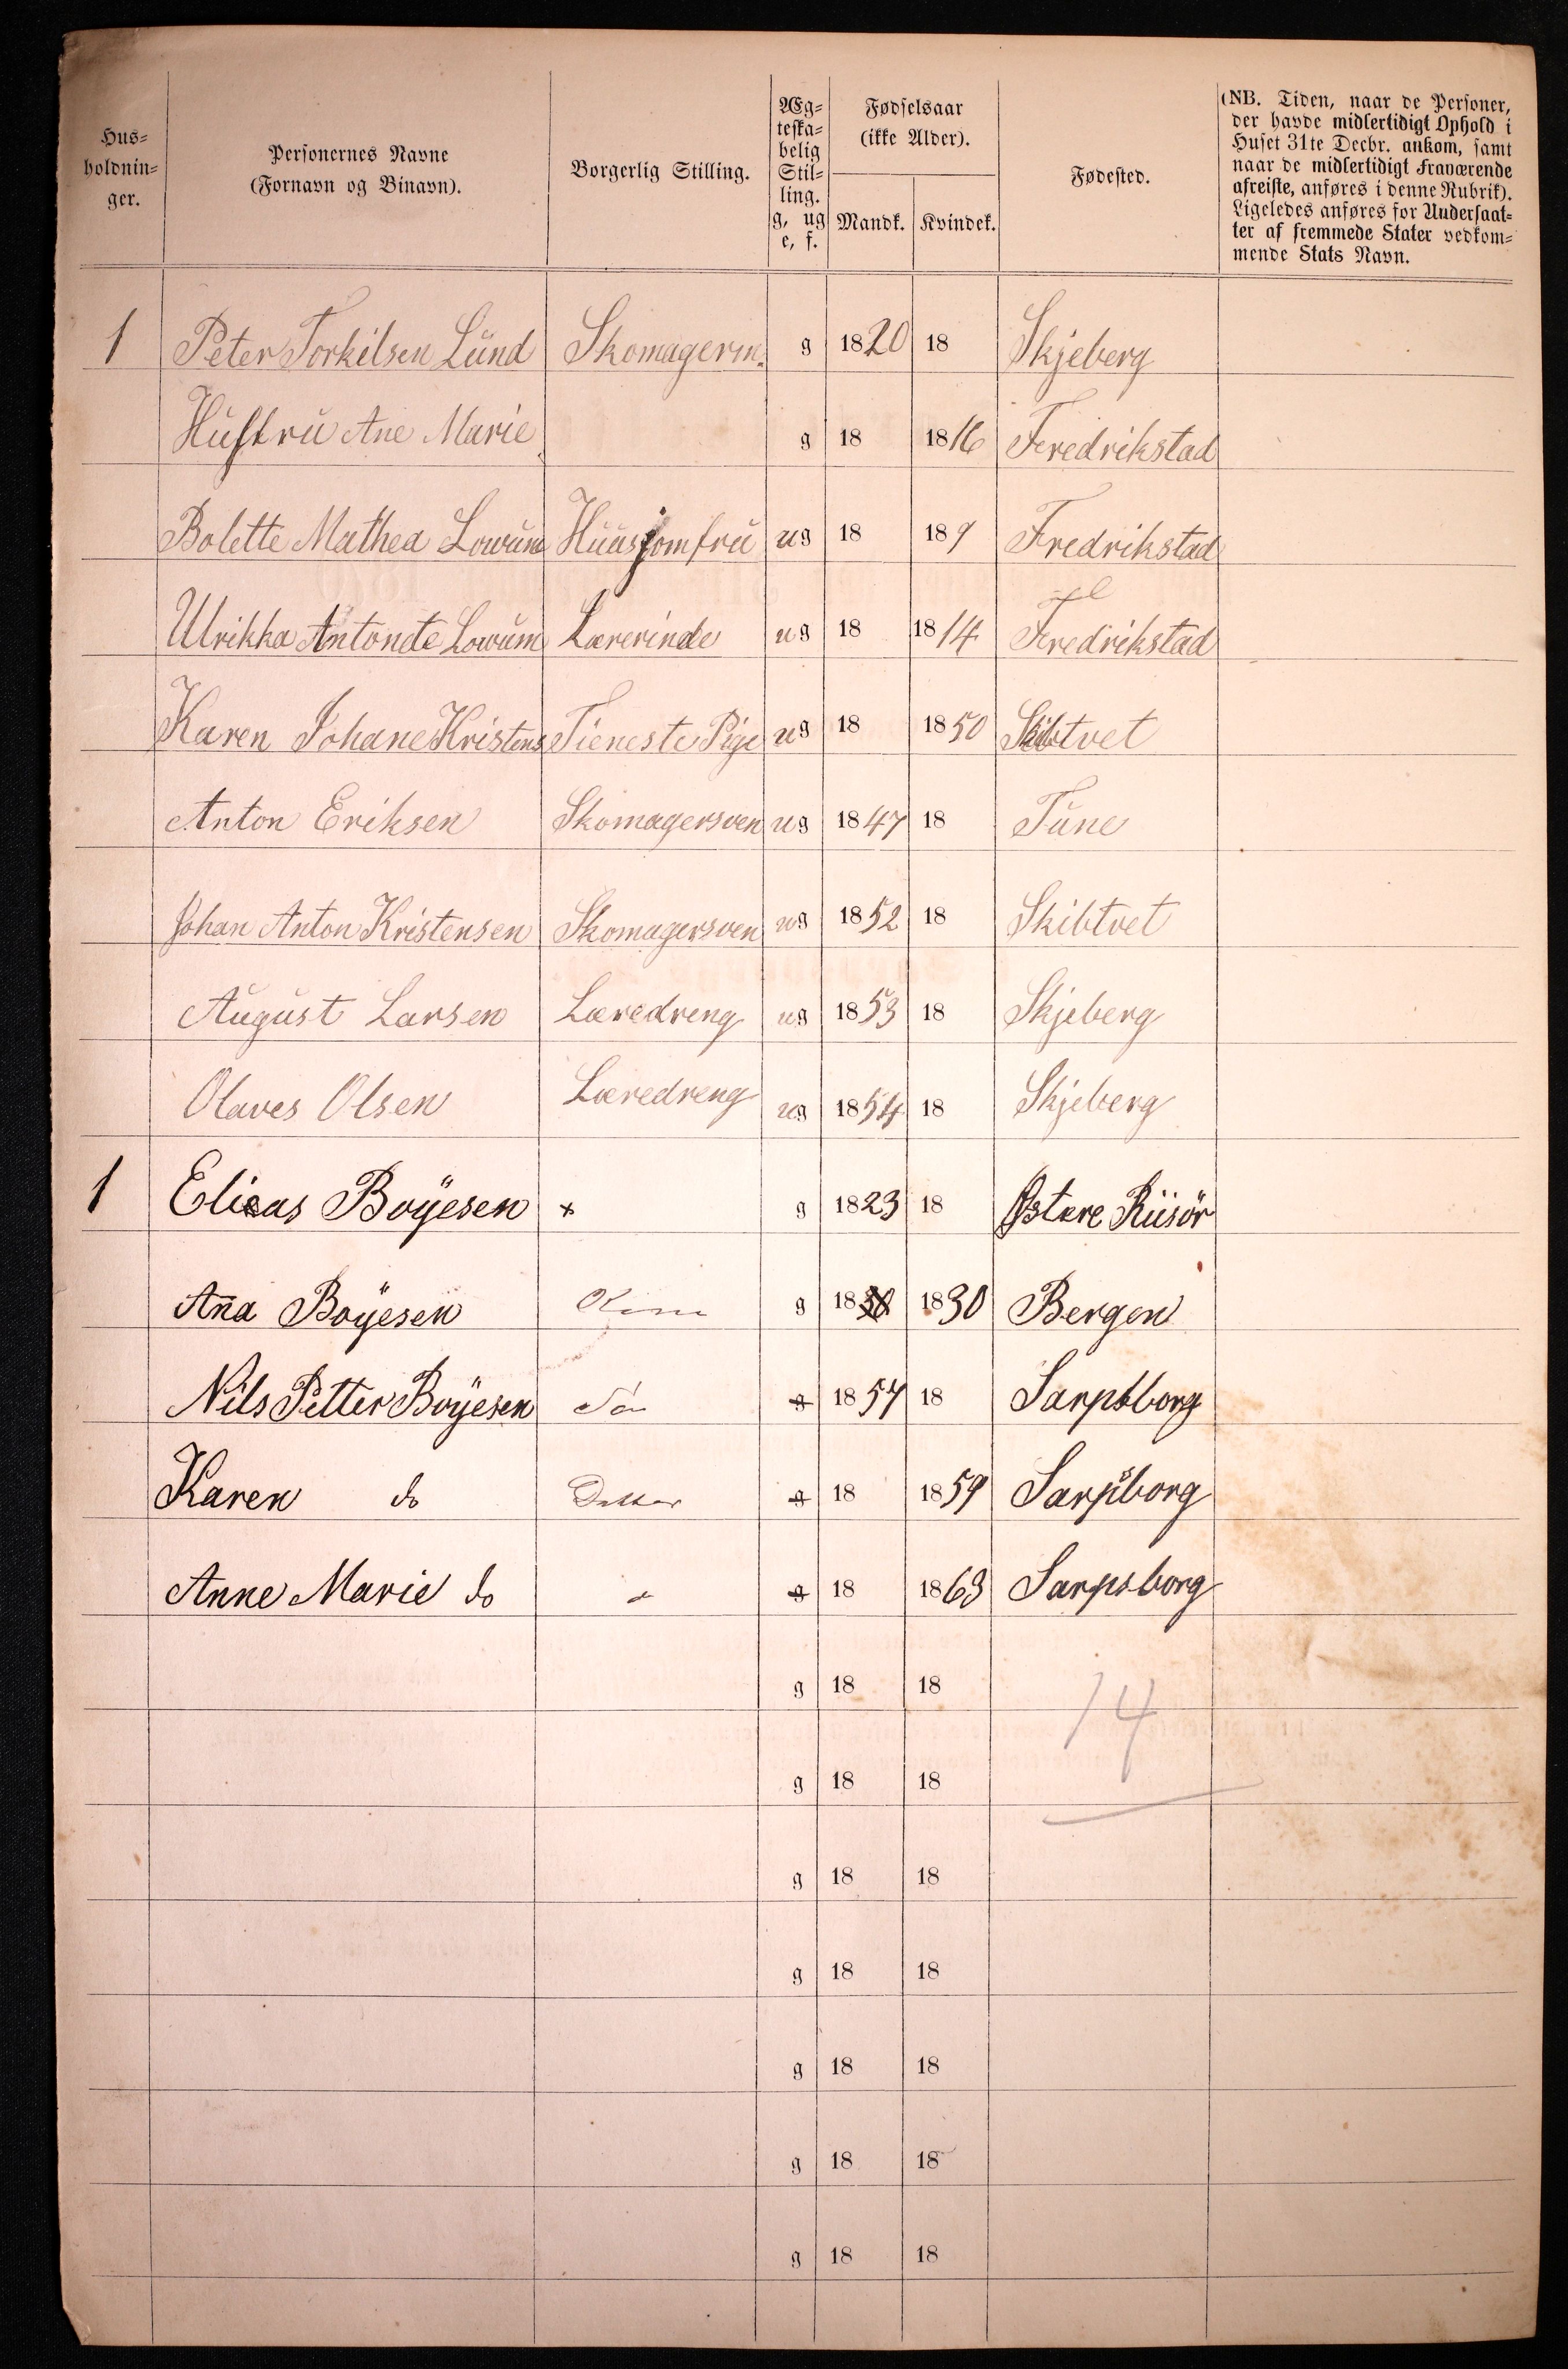 Hus=
holdnin=
ger.
Personernes Navne
(Fornavn og Binavn).
Borgerlig Stilling.
Æg=
teska=
belig
Stil=
ling.
g, ug
e, f.
Fødselsaar
(ikke Alder).
Mandk. Kvindek.
Fødested.
(NB. Tiden, naar de Personer,
der havde midlertidigt Ophold i
Huset 31te Decbr. ankom, samt
naar de midlertidigt Fraværende
afreiste, anføres i denne Rubrik).
Ligeledes anføres for Undersaat=
ter af fremmede Stater vedkom=
mende Stats Navn.
1 Peter Torkilsen Lund Skomagerm. g 1820 18 Skjeberg
Hustru Ane Marie g 18 1816 Fredrikstad
Bolette Mathea Lowum Huusjomfru ug 18 189 Fredrikstad
Ulrikka Antonete Lowum Lærerinde ug 18 1814 Fredrikstad
Karen Johane Kristens Tieneste Pige ug 18 1850 Skibtvet
Anton Eriksen Skomagersven ug 1847 18 Tune
Johan Anton Kristensen Skomagersven ug 1852 18 Skibtvet
August Larsen Læredreng ug 1853 18 Skjeberg
Olaves Olsen Læredreng ug 1854 18 Skjeberg
1 Elieas Boÿesen + g 1823 18 Østere Riisör
Ana Boÿesen Kone g 1830 1830 Bergen
Nils Petter Boÿesen Søn g 1857 18 Sarpsborg
Karen do Datter g 18 1859 Sarpsborg
Anne Marie do g 18 1863 Sarpsborg
g 18 18
14
g 18 18
g 18 18
g 18 18
g 18 18
g 18 18
g 18 18